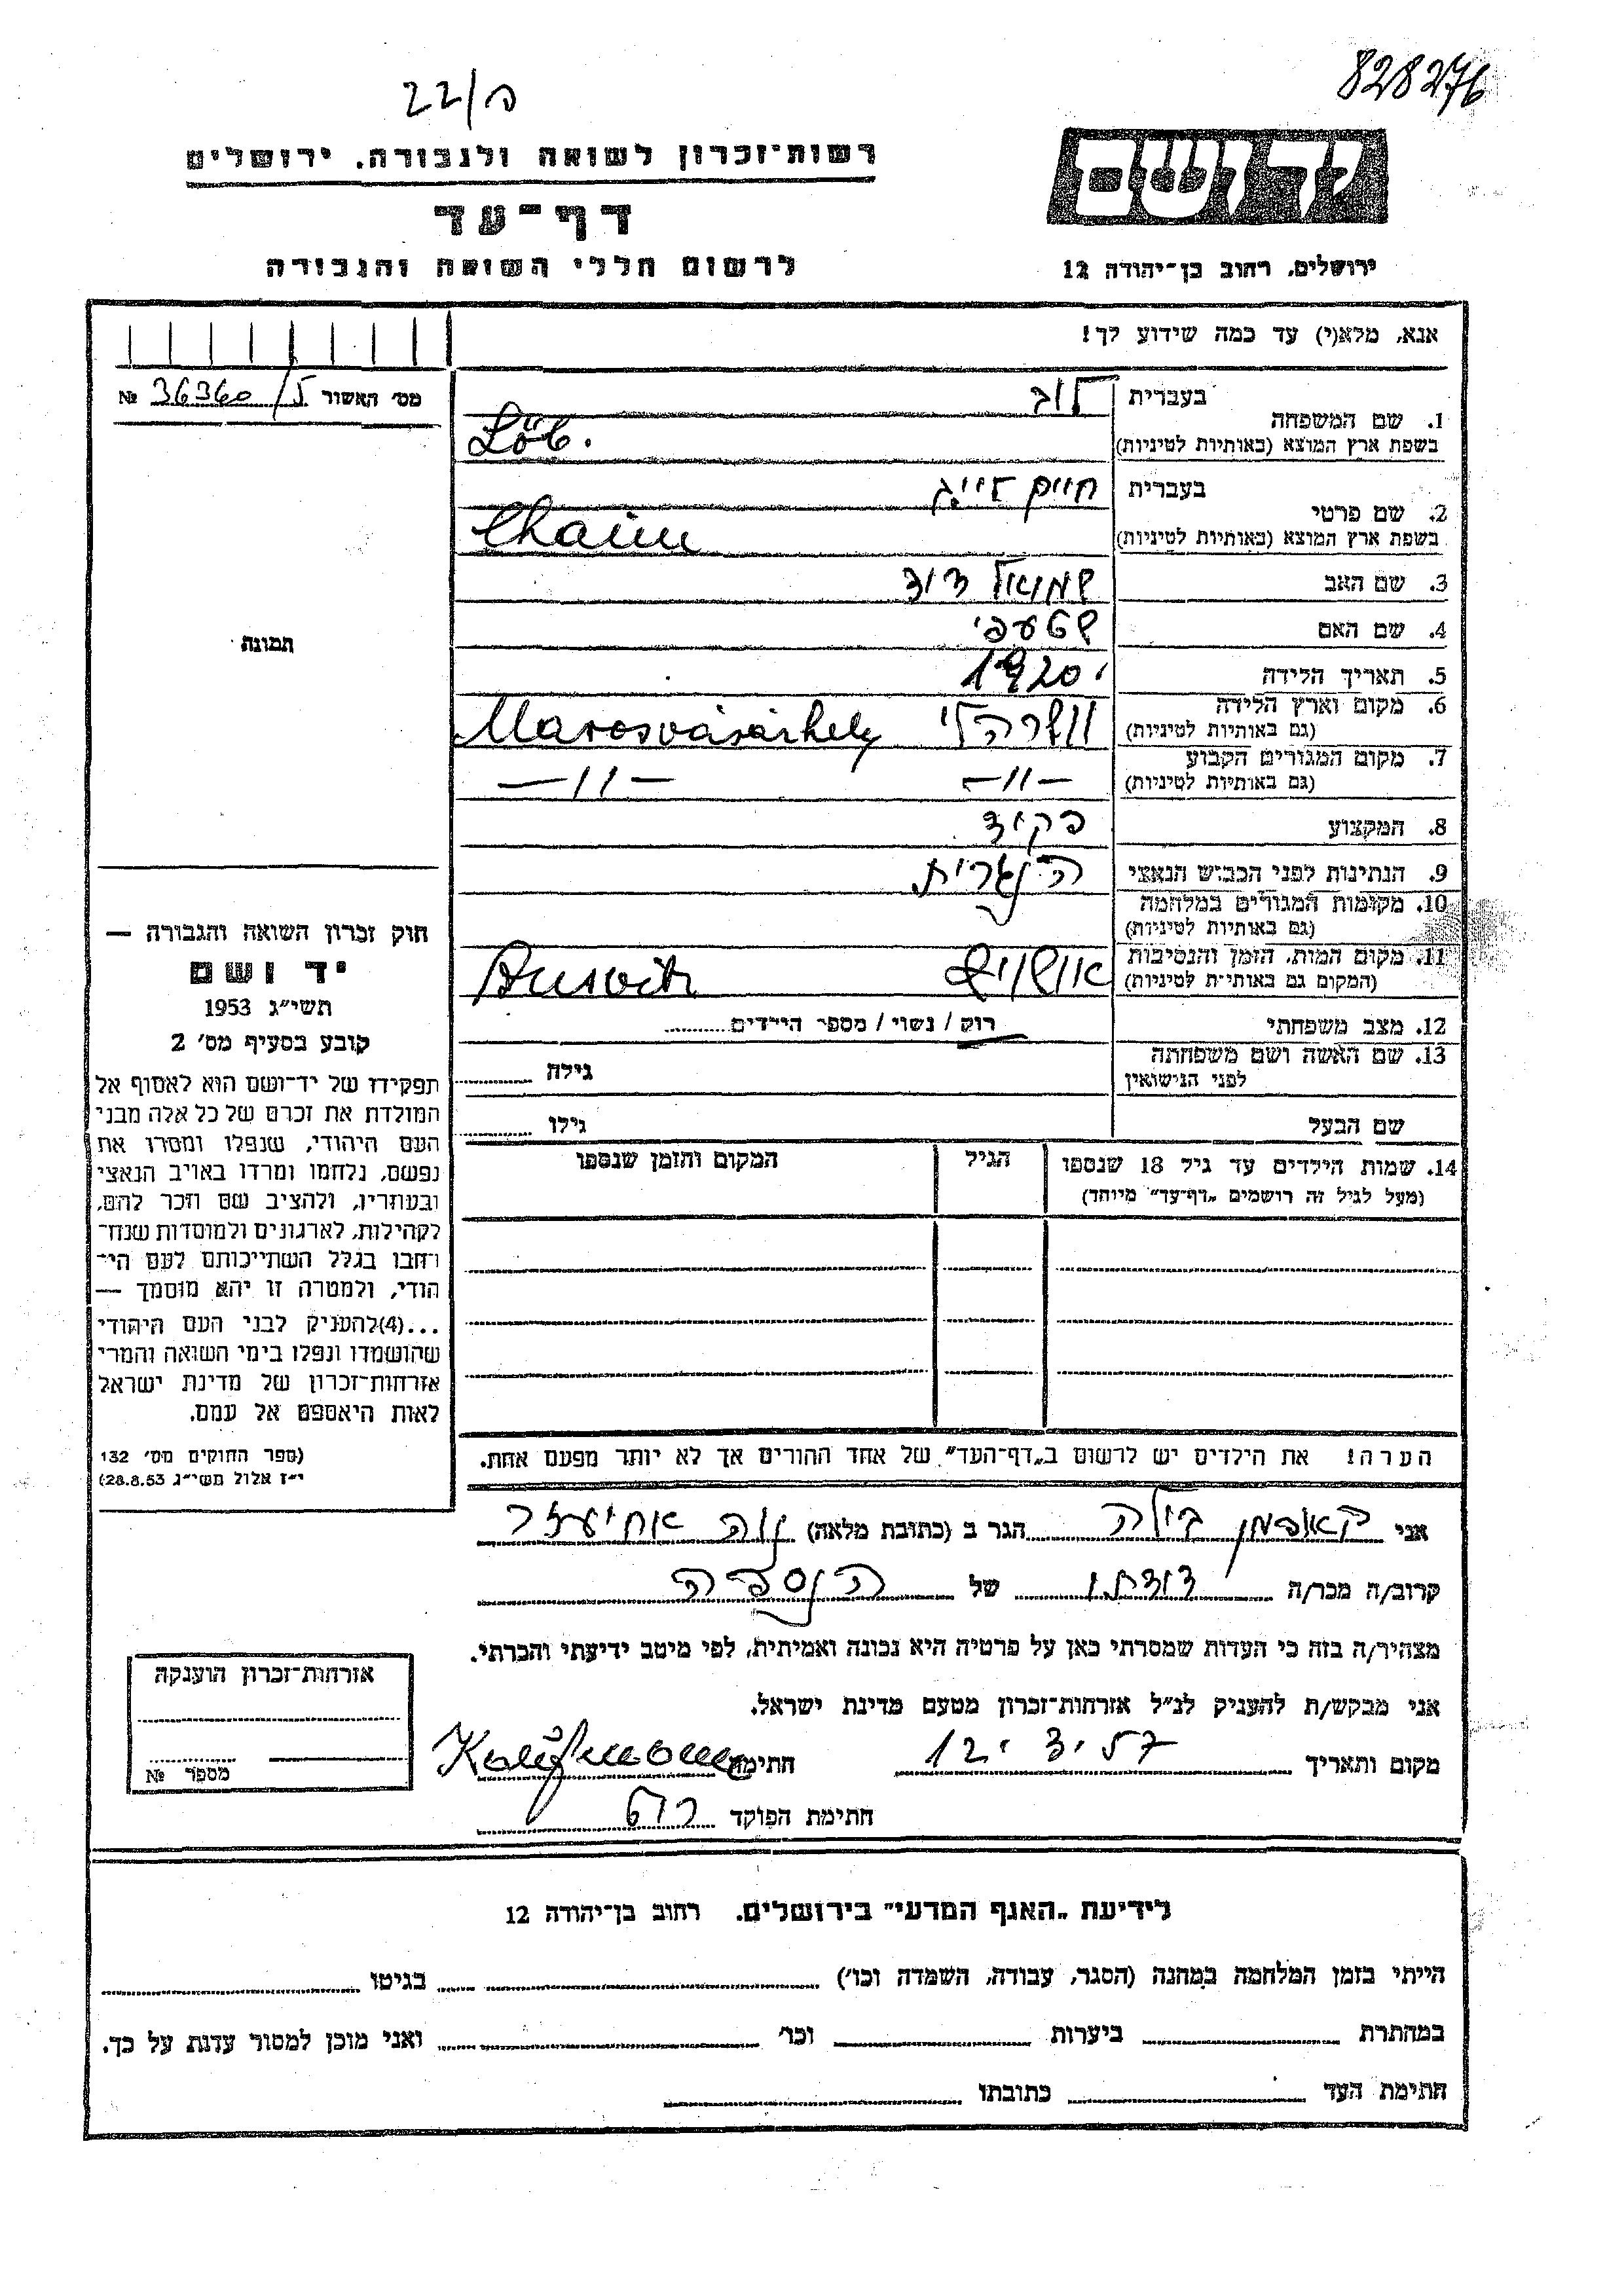 828276
פ/22
יד ושם
רשות־זכרון לשואה ולגבורה. ירושלים
דף־עד
לרשום חללי השואה והגבורה
ירושלים, רחוב בן־יהודה 12
אנא, מלא(י) עד כמה שידוע לך!
מס׳ האשור 36360/5 №
1. שם המשפחה
בעברית לוב
בשפת ארץ המוצא (באותיות לטיניות) Löb.
2. שם פרטי
בעברית חיים זייג
בשפת ארץ המוצא (באותיות לטיניות) Chaim
3. שם האב שמואל דוד
4. שם האם שטעפי
5. תאריך הלידה 1920
6. מקום וארץ הלידה
(גם באותיות לטיניות) Marosvásárhely
7. מקום המגורים הקבוע
(גם באותיות לטיניות) —11— —11—
8. המקצוע פקיד
9. הנתינות לפני הכבוש הנאצי הונגרית
10. מקומות המגורים במלחמה
(גם באותיות לטיניות)
11. מקום המות, הזמן והנסיבות
(המקום גם באותיות לטיניות) אושויץ Ausvitz
12. מצב משפחתי רוק / נשוי / מספר הילדים
13. שם האשה ושם משפחתה
לפני הנישואין גילה
שם הבעל גילו
14. שמות הילדים עד גיל 18 שנספו
(מעל לגיל זה רושמים „דף־עד״ מיוחד)
הגיל
המקום והזמן שנספו
הערה! את הילדים יש לרשום ב„דף־העד״ של אחד ההורים אך לא יותר מפעם אחת.
תמונה
חוק זכרון השואה והגבורה —
יד ושם
תשי״ג 1953
קובע בסעיף מס׳ 2
תפקידו של יד־ושם הוא לאסוף אל
המולדת את זכרם של כל אלה מבני
העם היהודי, שנפלו ומסרו את
נפשם, נלחמו ומרדו באויב הנאצי
ובעוזריו, ולהציב שם וזכר להם,
לקהילות, לארגונים ולמוסדות שנח־
רחבו בגלל השתייכותם לעם הי־
הודי, ולמטרה זו יהא מוסמך —
...(4)להעניק לבני העם היהודי
שהושמדו ונפלו בימי השואה והמרי
אזרחות־זכרון של מדינת ישראל
לאות היאספם אל עמם.
(ספר החוקים מס׳ 132
י״ז אלול תשי״ג 28.8.53)
אני קאופמן בילה הגר ב (כתובת מלאה) נוה אחיעזר
קרוב/ה מכר/ה דודתו של הנספה
מצהיר/ה בזה כי העדות שמסרתי כאן על פרטיה היא נכונה ואמיתית, לפי מיטב ידיעתי והכרתי.
אני מבקש/ת להעניק לנ״ל אזרחות־זכרון מטעם מדינת ישראל.
מקום ותאריך חתימה Kaufmann
חתימת הפוקד
אזרחות־זכרון הוענקה
מספר №
לידיעת „האגף המדעי״ בירושלים. רחוב בן־יהודה 12
הייתי בזמן המלחמה במחנה (הסגר, עבודה, השמדה וכו׳) בגיטו
במחתרת ביערות וכו׳ ואני מוכן למסור עדות על כך.
חתימת העד כתובתו